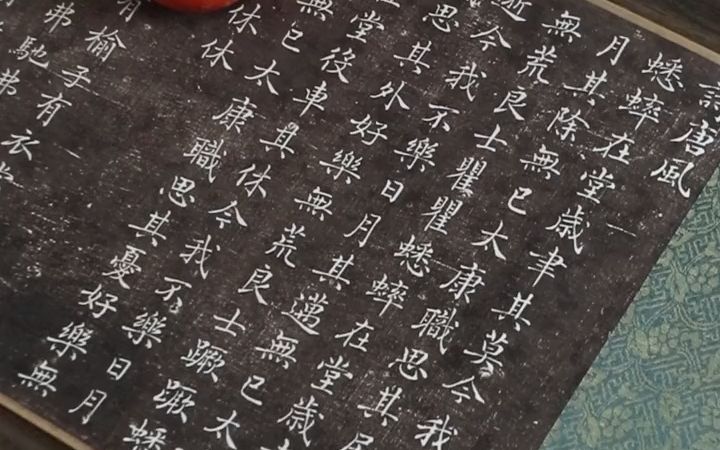 唐風
蟋蟀在堂歲聿其莫今我
月其除無已大康職思其居
無荒良士瞿瞿蟋蟀在堂歲
逝今我不樂日月其邁無已大
思其外好樂無荒良士蹶蹶蟋
堂役車其休今我不樂日月
無已大康職思其憂好樂無
休休
有榆子有衣
弗馳弗